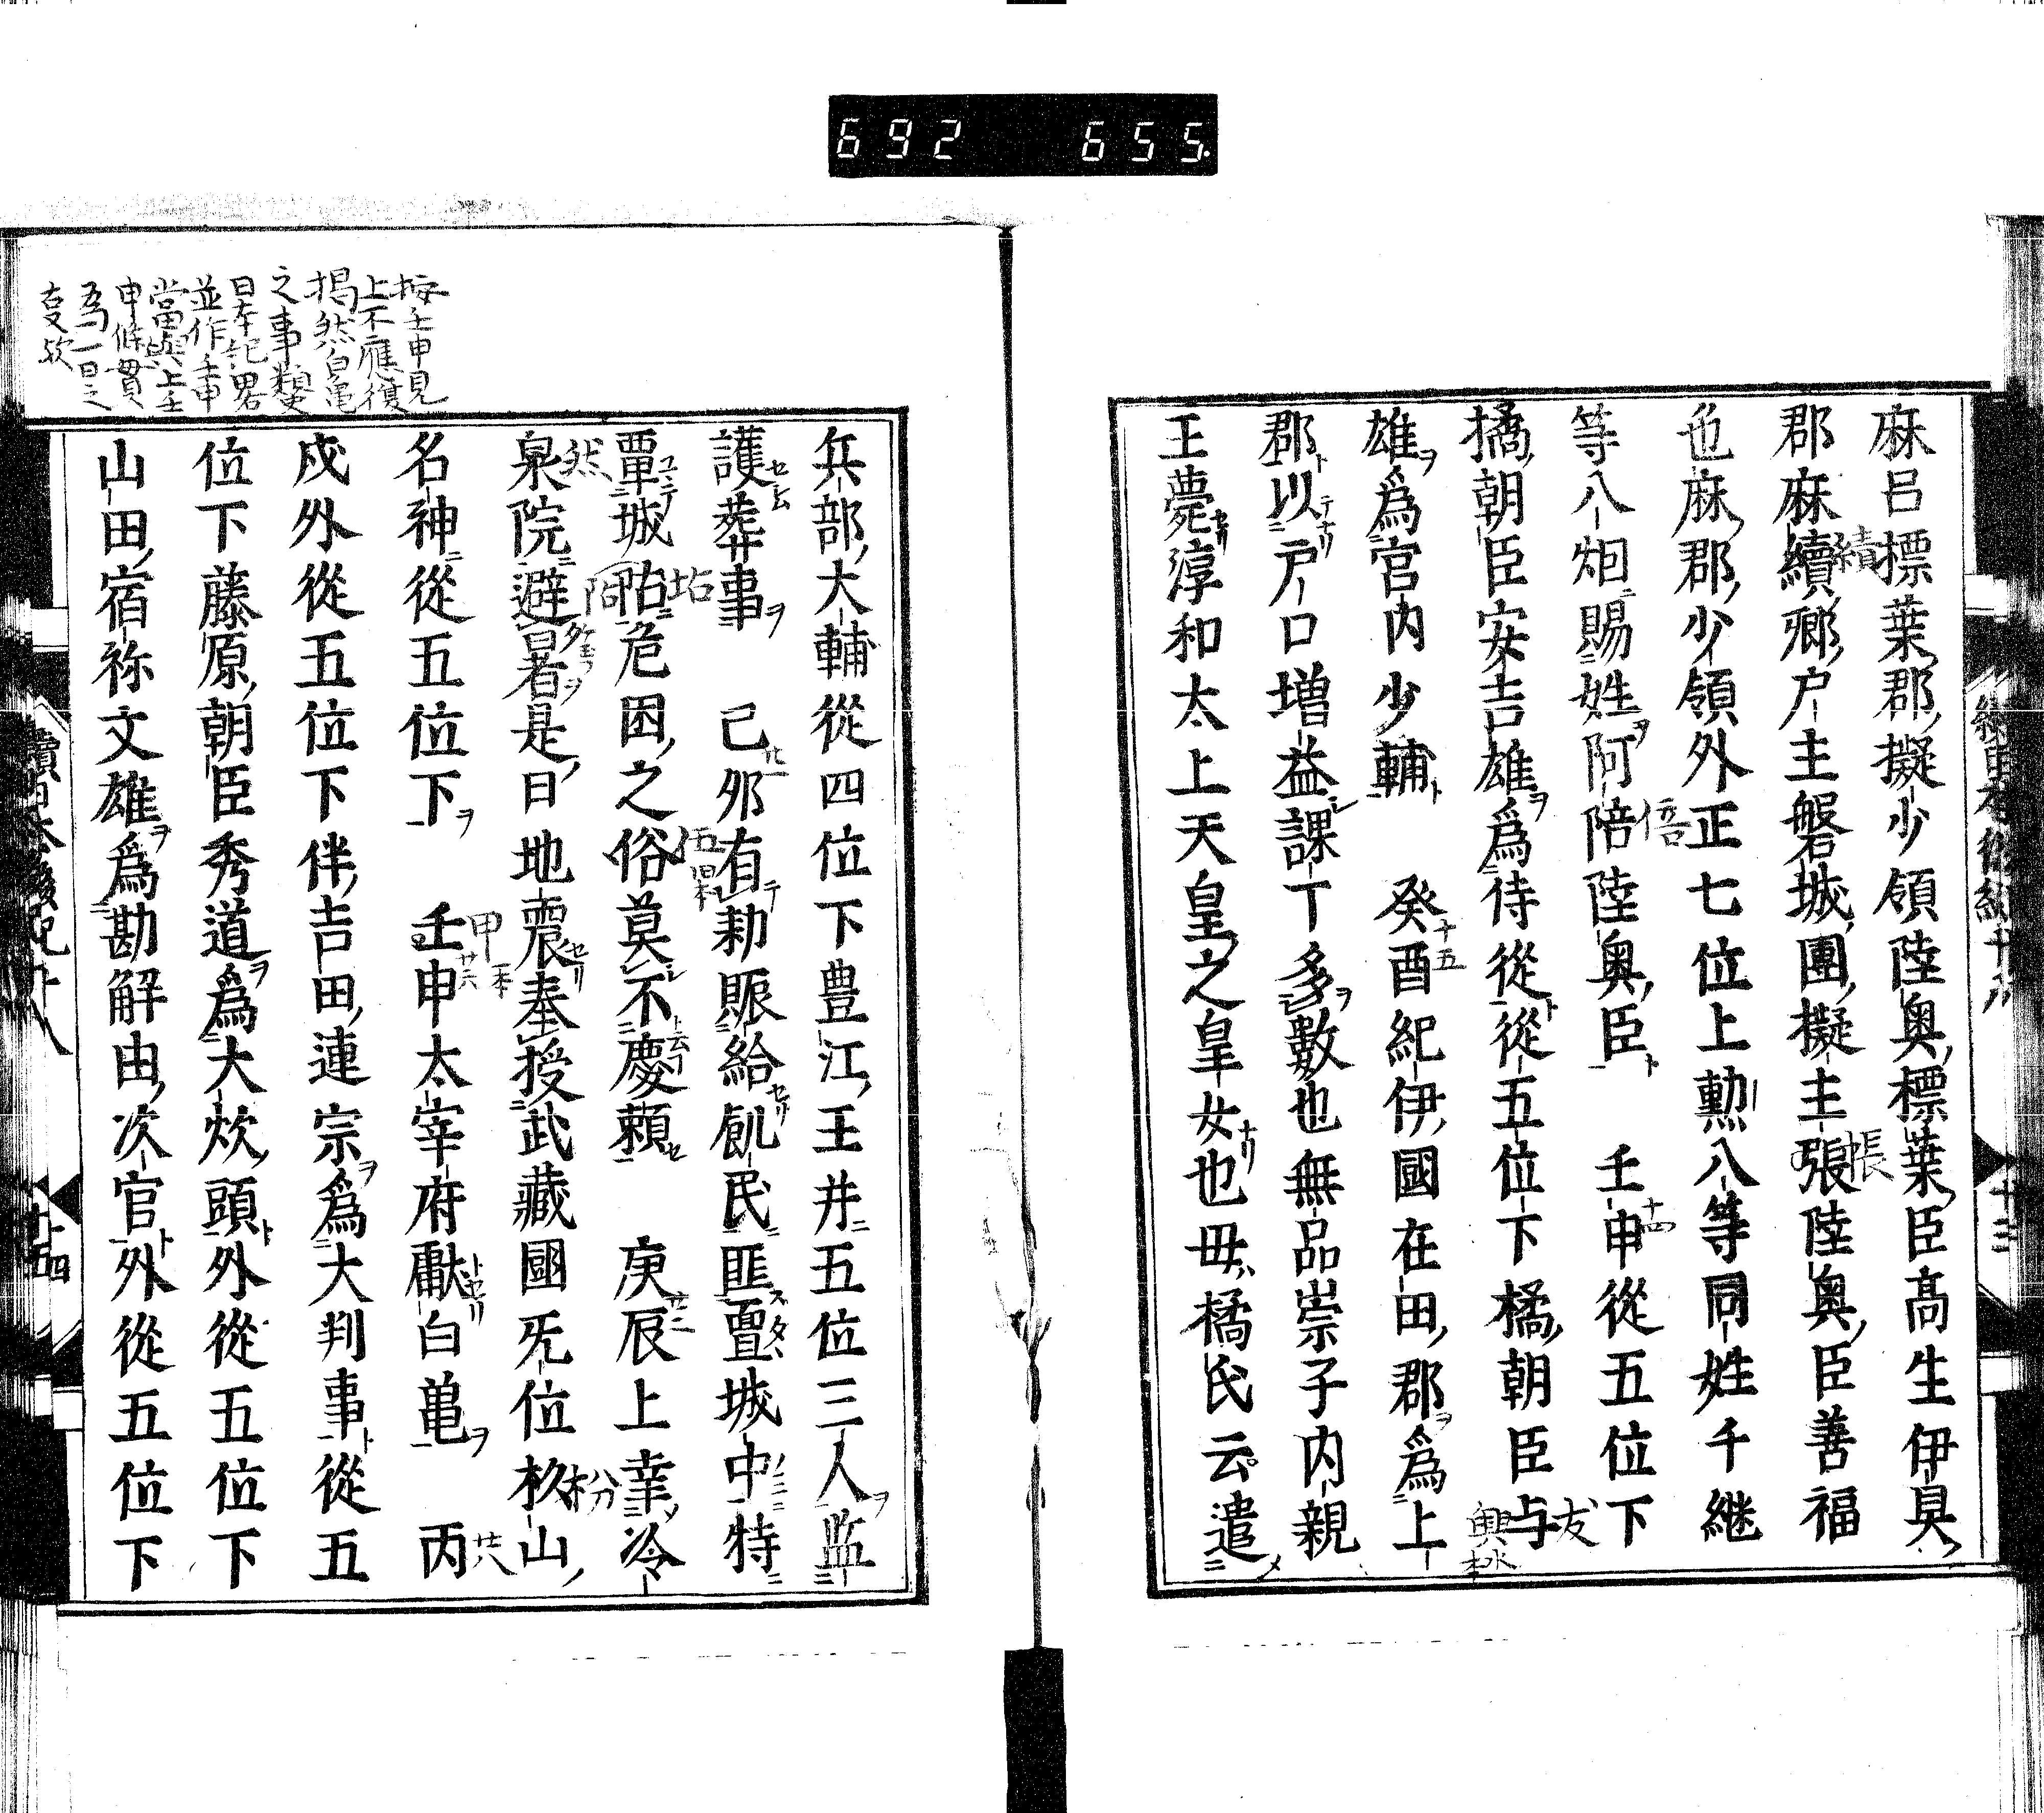 692 655
麻呂標葉郡擬少領陸奥標葉臣高生伊具
郡麻續郷户主磐城團擬主張陸奥臣善福
色麻郡少領外正七位上勲八等同姓千継
等八烟賜姓阿陪陸奥臣 壬申從五位下
橘朝臣安吉雄爲侍從從五位下橘朝臣与
雄爲宮内少輔 癸酉紀伊國在田郡爲上
郡以户口増益課丁多數也無品崇子内親
王薨淳和太上天皇之皇女也母橘氏云遣
兵部大輔從四位下豊江王并五位三人監
護葬事 己夘有勅賑給飢民匪亶城中特
覃城阽危困之俗莫不慶頼 庚辰上幸冷
泉院避暑是日地震奉授武藏國旡位杦山
名神從五位下 壬申太宰府獻白亀 丙
戌外從五位下伴吉田連宗爲大判事從五
位下藤原朝臣秀道爲大炊頭外從五位下
山田宿祢文雄爲勘解由次官外從五位下
按壬申見
上不應復
掲然白亀
之事類史
日本紀畧
並作壬申
當與上壬
申條貫
爲一日之
支歟
續日本後紀十八